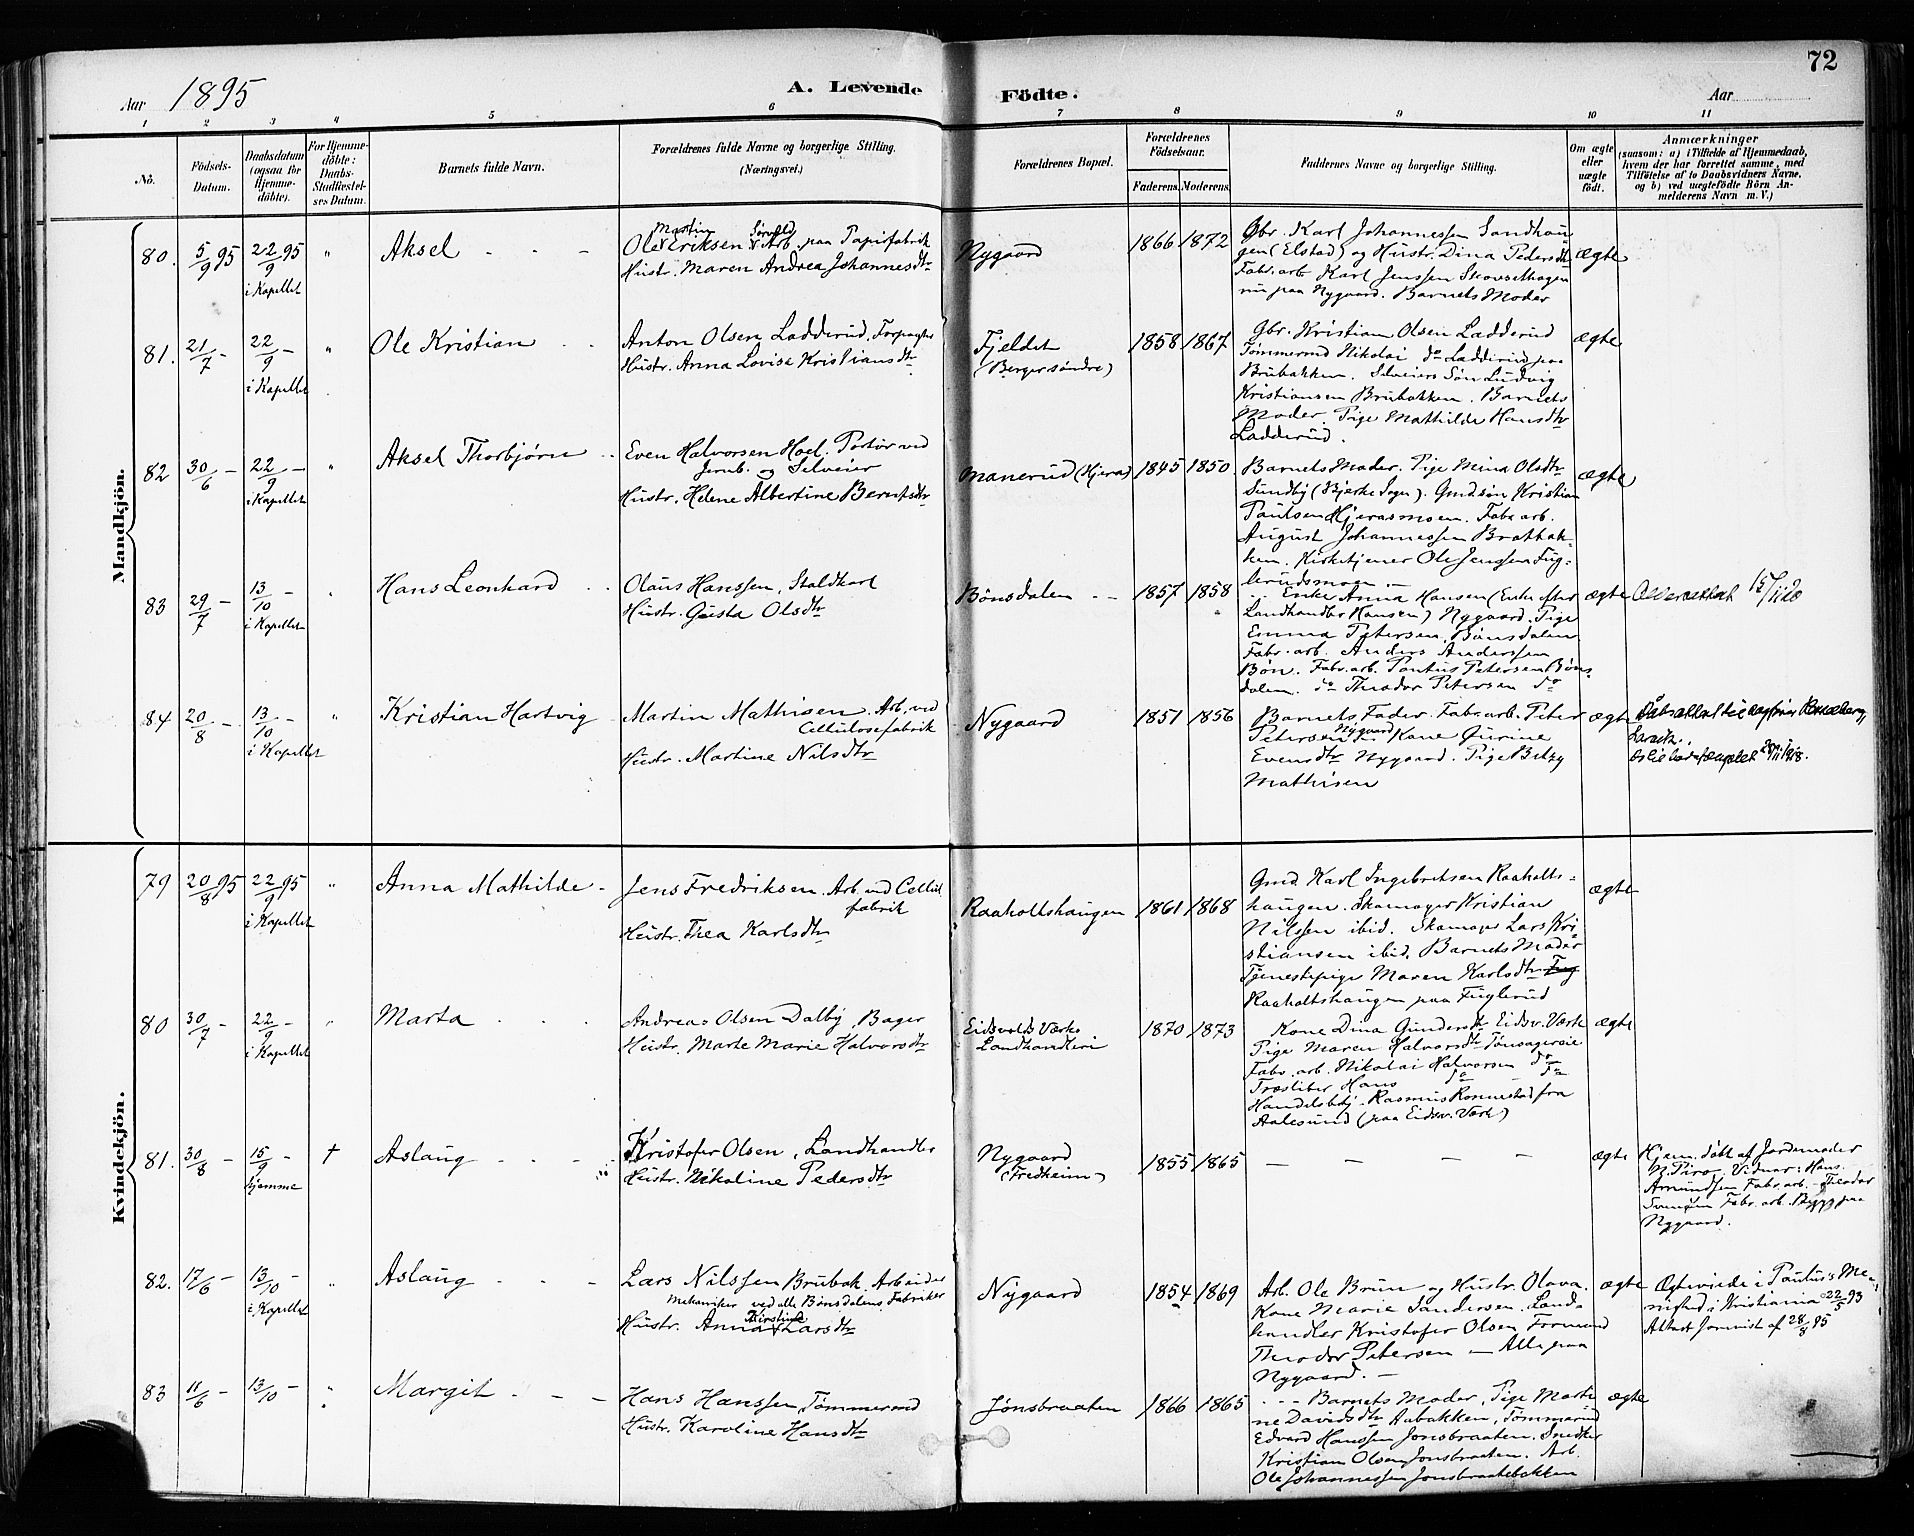 72
Aar 1895
A. Levende Födte.
Aar
1 2 3 4 5 6 7 8 9 10 11
No.
Födsels-
Datum.
Daabsdatum
(ogsaa for
Hjemme-
döbte).
For Hjemme-
döbte:
Daabs-
Stadfæstel-
ses Datum.
Barnets fulde Navn.
Forældrenes fulde Navne og borgerlige Stilling.
(Næringsvei.)
Forældrenes Bopæl.
Forældrenes
Födselsaar.
Faderens. Moderens.
Faddernes Navne og borgerlige Stilling.
Om ægte
eller
uægte
födt.
Anmærkninger
(saasom: a) i Tilfælde af Hjemmedaab,
hvem der har forrettet samme, med
Tilföielse af to Daabsvidners Navne,
og b) ved uægtefödte Börn An-
melderens Navn m. V.)
Mandkjön.
80. 5/9 95 22/9 95 i Kapellet " Aksel
Martin
Ole Eriksen Arb. paa Papirfabrik
Hustr. Maren Andrea Johannesdtr
Nygaard 1866 1872
Gbr. Karl Johannessen Sandhau
gen (Elstad) og Hustr. Dina Pedersdtr
Fabr. arb. Karl Jenssen
nu paa Nygaard. Barnets Moder
ægte
81. 21/7 - 22/9 - i Kapellet " Ole Kristian
Anton Olsen Ladderud, Forpagter
Hustr. Anna Lovise Kristiansdtr
Fjeldet
(Berger söndre)
1858 1867
Gbr. Kristian Olsen Ladderud
Tömmermd Nikolai do Ladderud paa
Brubakken. Selveiers Sön Ludvig
Kristiansen Brubakken. Barnets
Moder. Pige Mathilde Hansdtr
Ladderud.
ægte
82 30/6 - 22/9 - i Kapellet " Aksel Thorbjørn
Even Halvorsen Hoel, Portör ved
Jernb. og Selveier
Hustr. Helene Albertine Berntsdtr
Manerud (Hjera) 1845 1850
Barnets Moder. Pige Mina Olsdtr
Sundby (Bjerke Sogn). Gmd. sön Kristian
Paulsen Hjerasmoen. Fabr. arb.
August Johannessen Brattbak-
ken. Kirketjener Ole Jenssen Fug-
lerudsmoen. -
ægte
83 29/7 - 13/10 - i Kapellet " Hans Leonhard
Olaus Hanssen, Staldkarl
Hustr. Gusta Olsdtr
Bönsdalen 1857 1858
Enke Anna Hansen (Enke efter
Landhandler Hansen) Nygaard. Pige
Emma Petersen, Bönsdalen
Fabr. arb. Anders Anderssen
Bön. Fabr. arb. Pontus Petersen Böns-
dalen. do Theodor Petersen do
ægte
84 20/8 - 13/10 - i Kapellet " Kristian Hartvig
Martin Mathisen, Arb. ved
Cellulosefabrik
Hustr. Martine Nilsdtr
Nygaard 1851 1856
Barnets Fader. Fabr. arb. Peter
Petersen Nygaard Kone Gurine
Evensdtr Nygaard. Pige Betzy
Mathisen
ægte
Larvik.
Kvindekjön.
79 20/8 95 22/9 95 i Kapellet " Anna Mathilde
Jens Fredriksen. Arb. ved Cellul.
fabrik
Hustr. Thea Karlsdtr
Raaholtshaugen 1861 1868
Gmd. Karl Ingebretsen Raaholts-
haugen. Skomager Kristian
Nilssen ibid. Skomager Lars Kri-
stiansen ibid. Barnets Moder
Tjenestepige Maren Karlsdtr
Raaholtshaugen paa Fuglerud
ægte
80 30/7 - 22/9 - i Kapellet " Marta
Andreas Olsen Dalby, Bager
Hustr. Marte Marie Halvorsdtr
Eidsvolds Værks
Landhandleri
1870 1873
Kone Dina Gundersdtr Eidsv. Værk
Pige Maren Halvorsdtr Tönsagereie
Fabr. arb. Nikolai Halvorsen do
Træsliber Hans do do
Handelsbtj. Rasmus Ronnestad fra
Aalesund (paa Eidsv. Værk)
ægte
81. 30/8 - 15/9 - hjemme † Aslaug
Kristofer Olsen, Landhandler
Hustr. Nikoline Pedersdtr
Nygaard
(Fredheim)
1855 1865
- - - -
ægte
Hjem. döbt af Jordemoder
N. Piro. Vidner: Hans
Amundsen Fabr. arb. - Theodor
Svensen Fabr. arb. Begge paa
Nygaard.
82. 17/6 - 13/10 - i Kapellet " Aslaug
Lars Nilssen Brubak. Arbeider
Mekaniker ved alle Bönsdalens Fabriker
Hustr. Anna Kirstine Larsdtr
Nygaard 1854 1869
Arb. Ole Brun og Hustr. Olava.
Kone Marie Sandersen. Land-
handler Kristofer Olsen Formand
Theodor Petersen - Alle paa
Nygaard. -
ægte
Ægteviede i Paulus's Me-
nighed i Kristiania 22/5 93
Attest Jormvist af 28/8 95
83 11/6 - 13/10 - " Margit
Hans Hanssen, Tömmermd
Hustr. Karoline Hansdtr
Jönsbraaten 1866 1865
Barnets Moder, Pige Marti
ne Davidsdtr Aabakken, Tömmermd
Edvard Hanssen Jonsbraaten. Snedker
Kristian Olsen Jonsbraaten. Arb.
Ole Johannessen Jonsbraatebakken
ægte